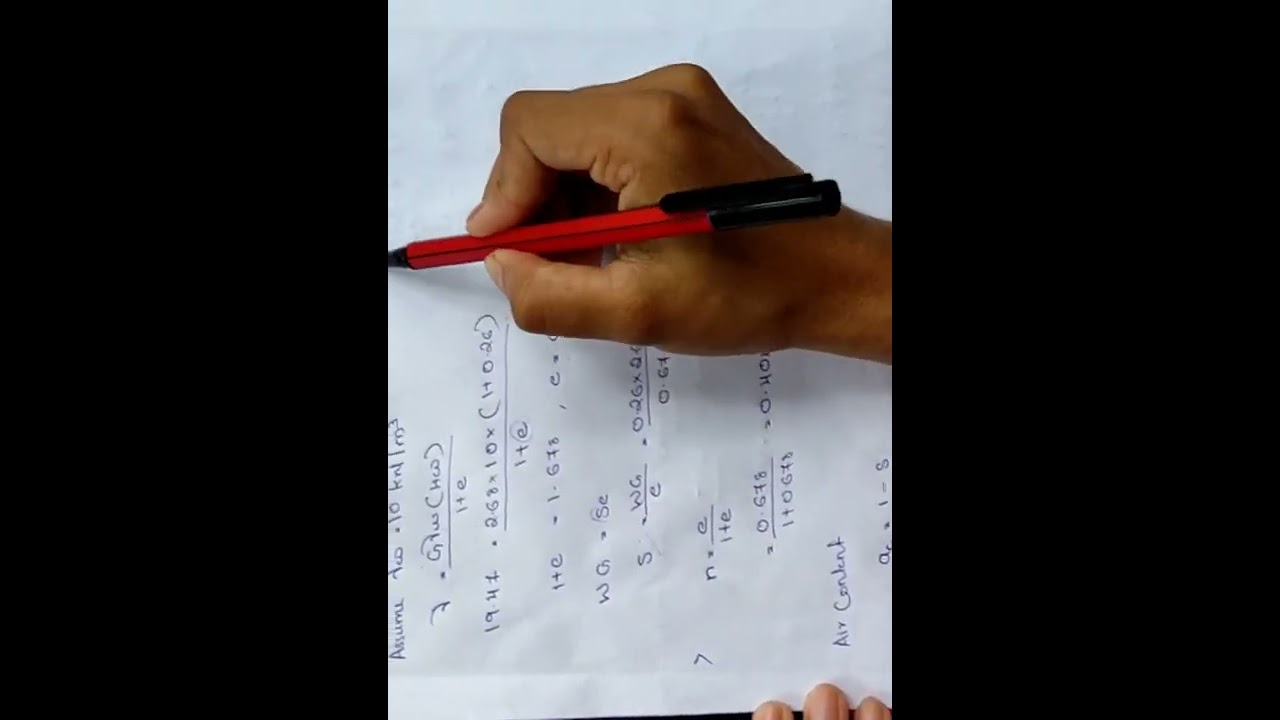 Assume γω = 10 kN/m³
γ = Gγω(1+ω) / 1+e
19.47 = 2.68 × 10 × (1+0.26) / 1+e
1+e = 1.678 , e =
wG = Se
S = wG / e = 0.26×2.6 / 0.67
n = e / 1+e
= 0.678 / 1+0.678 = 0.40
Air Content
ac = 1 - S